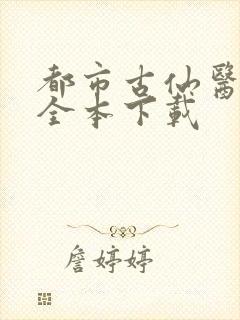 都市古仙醫
全本下載
詹婷婷